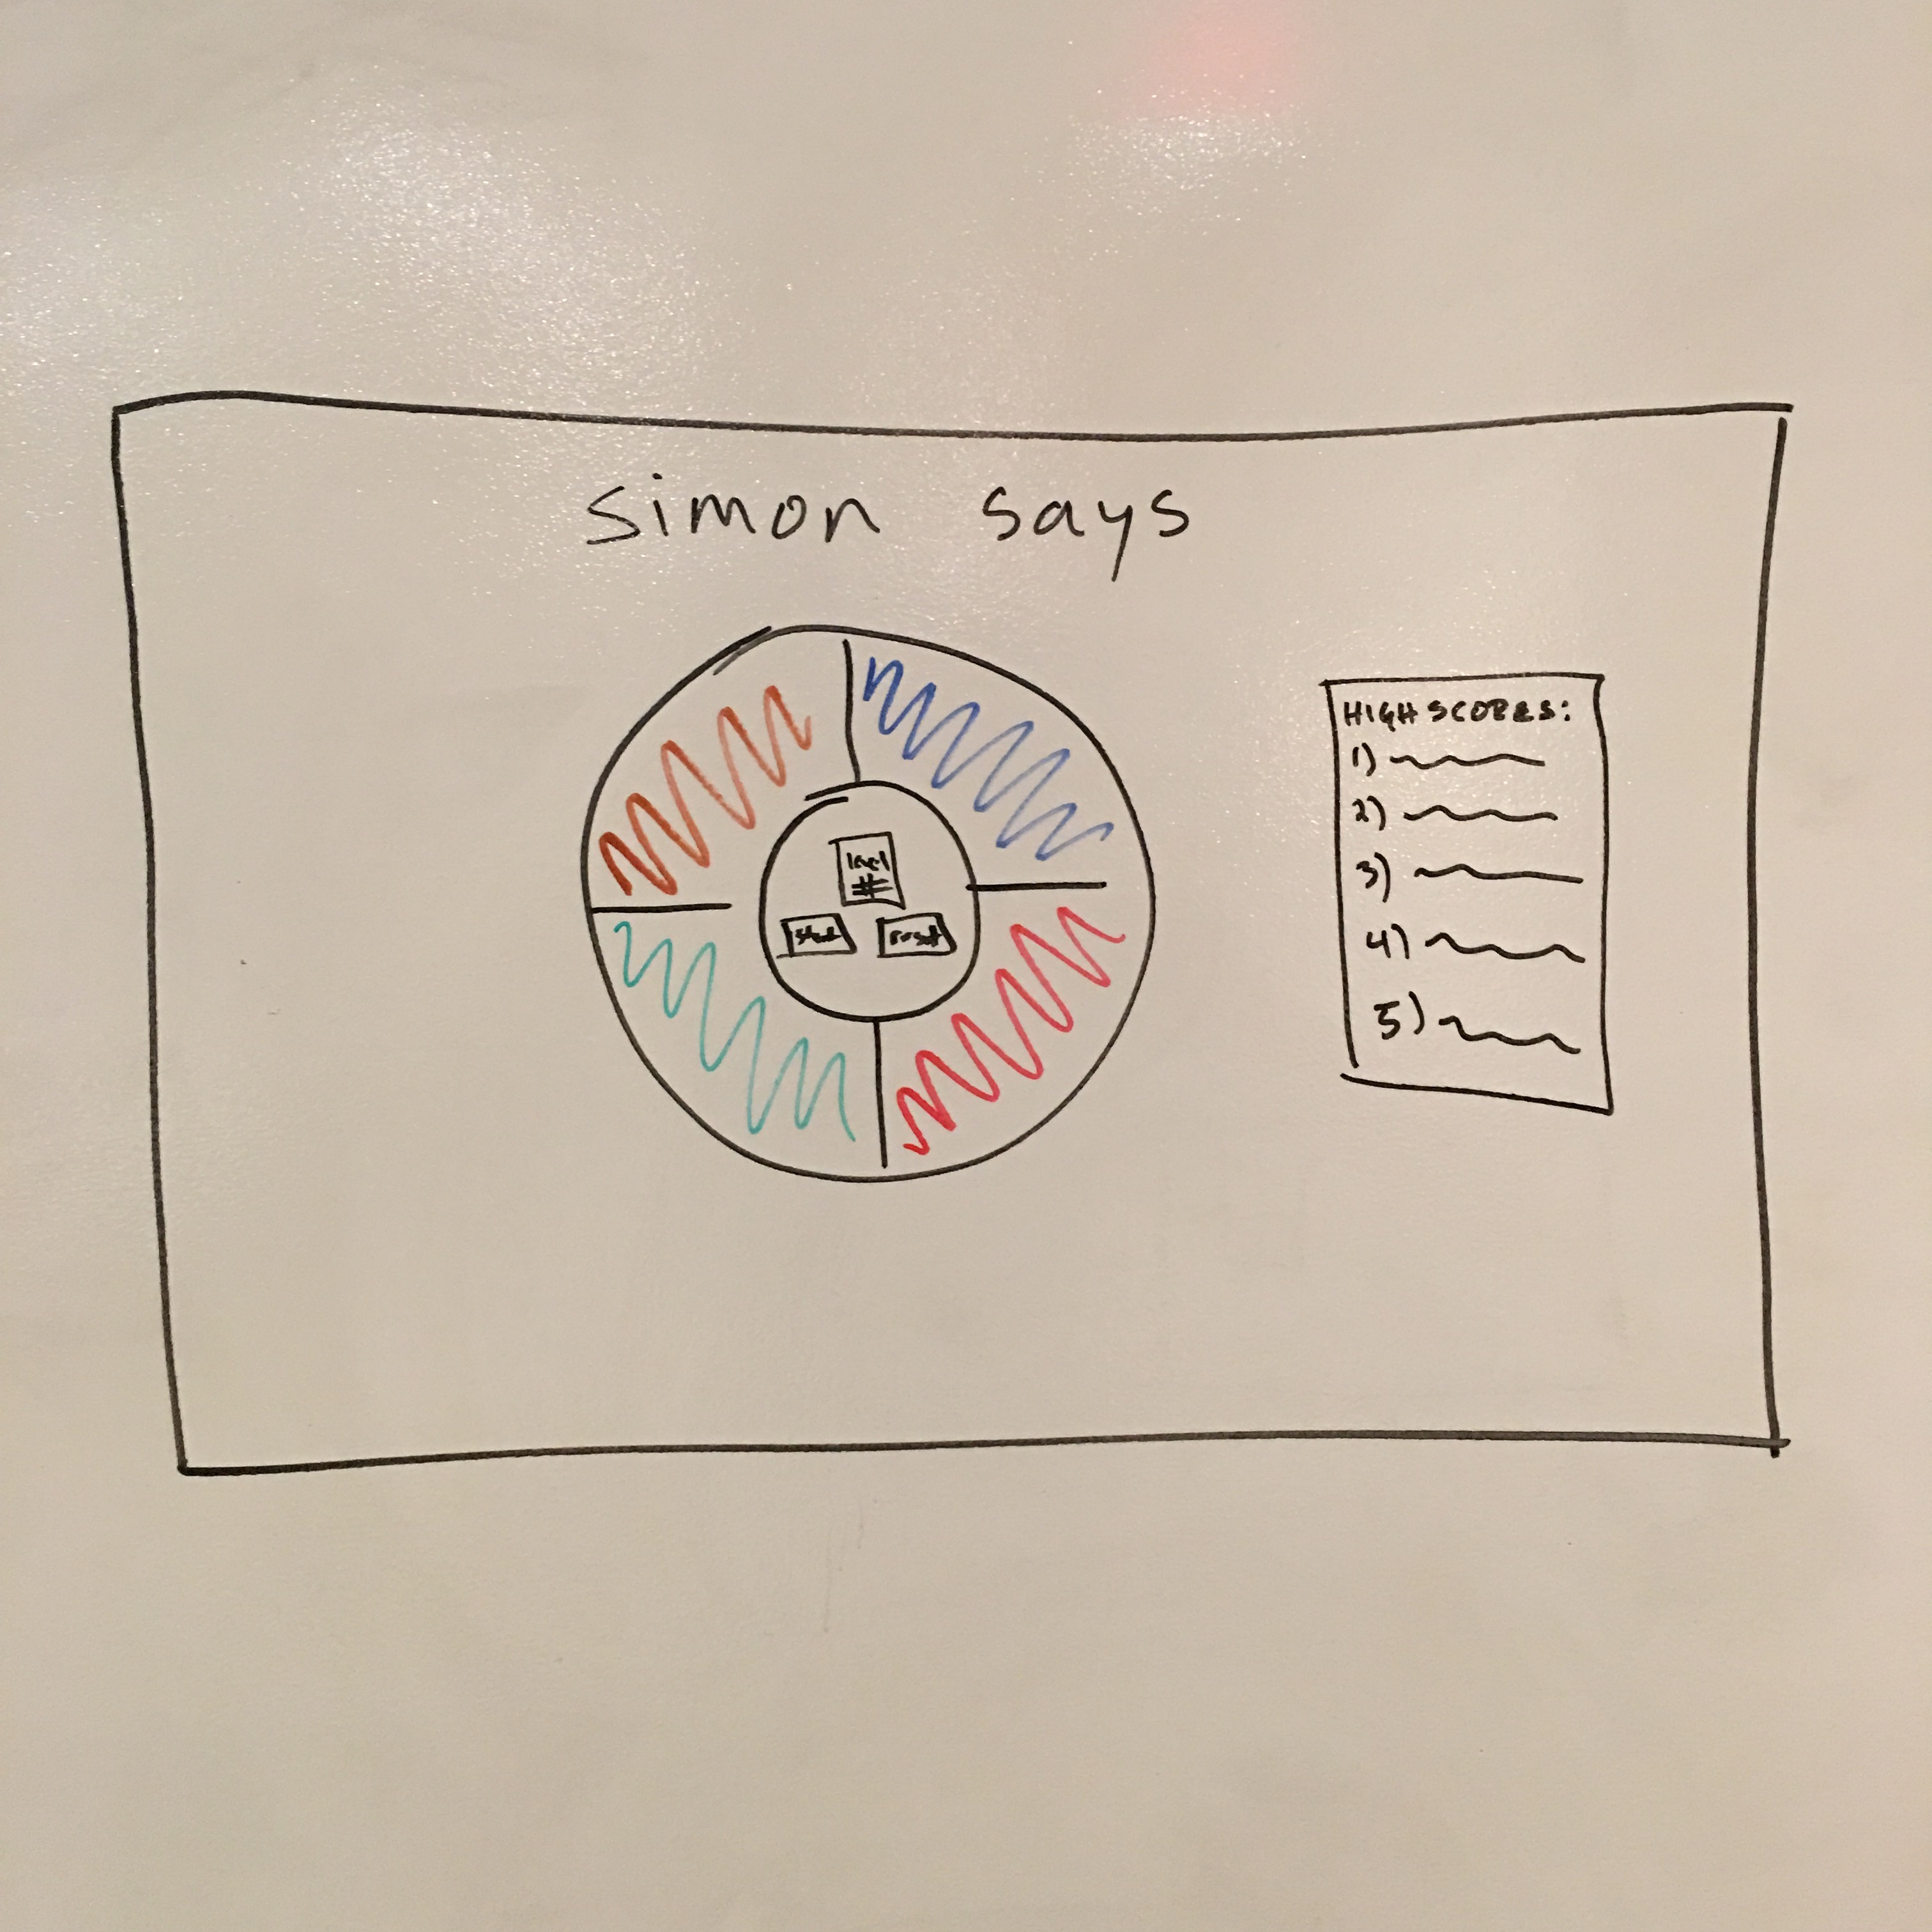 simon says
level
#
start
reset
HIGH SCORES:
1)
2)
3)
4)
5)